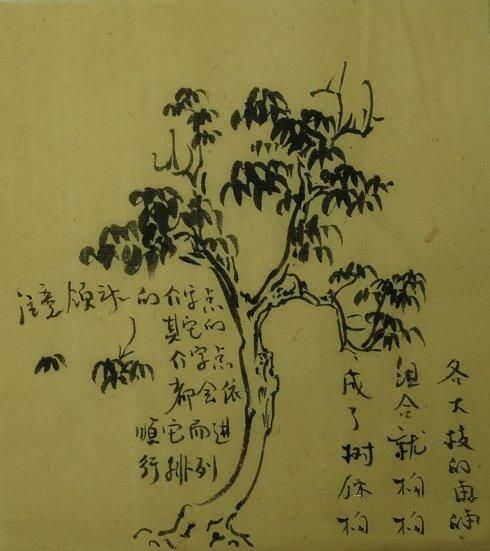 各大枝的
组合就构
成了树
注意领袖的介字点
其它的
介字点
都会依
顺它而进
行排列